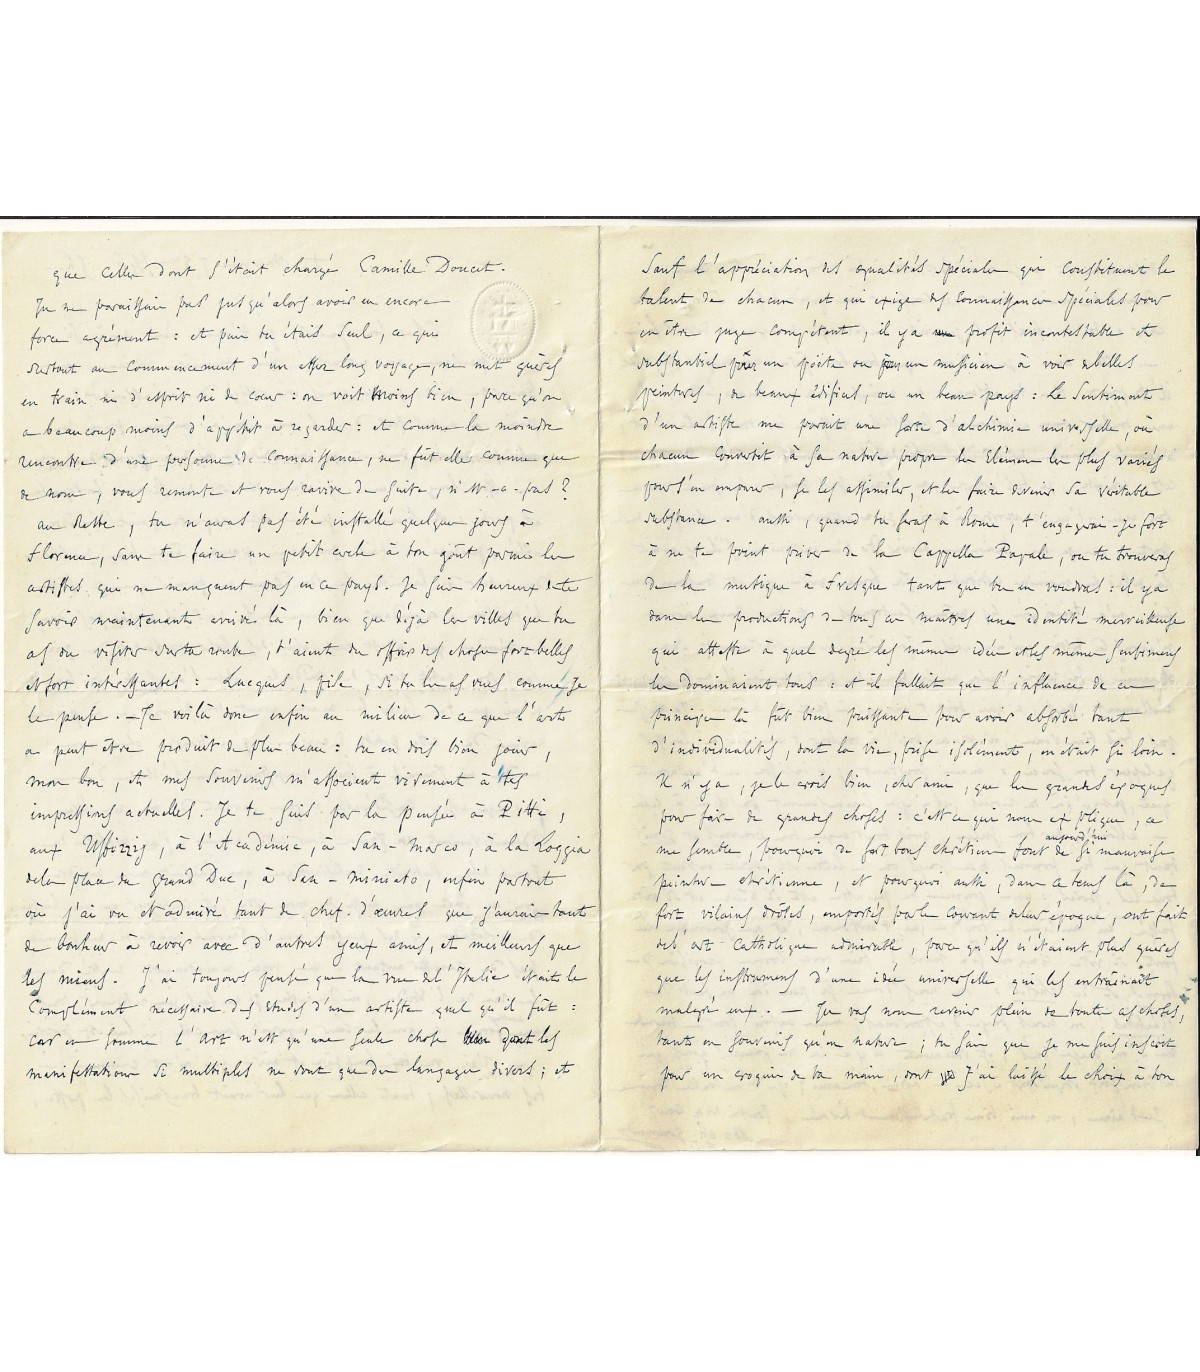 que celles dont s'était chargé Camille Doucet.
Tu ne paraissais pas jusqu'alors avoir eu encore
force agrément : et puis tu étais seul, ce qui
surtout au commencement d'un assez long voyage, ne met guères
en train ni d'esprit ni de cœur : on voit moins bien, parce qu'on
a beaucoup moins d'appétit à regarder : et comme la moindre
rencontre d'une personne de connaissance, ne fût elle connue que
de nom, vous remonte et vous ravive de suite, n'est-a-pas?
au Reste, tu n'auras pas été installé quelques jours à
Florence, sans te faire un petit cercle à ton goût parmi les
artistes qui ne manquent pas en ce pays. Je suis heureux de te
savoir maintenant arrivé là, bien que déjà les villes que tu
as du visiter sur ta route, t'aient du offrir des choses fort belles
et fort intéressantes : Lucques, Pise, si tu les as vues comme je
le pense. — Te voilà donc enfin au milieu de ce que l'art
a peut être produit de plus beau : tu en dois bien jouir,
mon bon, et mes souvenirs m'associent vivement à tes
impressions actuelles. Je te suis par la pensée à Pitti,
aux Uffizzij, à l'Académie, à San-Marco, à la Loggia
de la place du grand Duc, à San-Miniato, enfin partout
où j'ai vu et admiré tant de chef-d'œuvres que j'aurais tant
de bonheur à revoir avec d'autres yeux amis, et meilleurs que
les miens. J'ai toujours pensé que la vue de l'Italie était le
Complément nécessaire des études d'un artiste quel qu'il fût :
car en somme l'Art n'est qu'une seule chose dont les
manifestations si multiples ne sont que des langages divers; et
Sauf l'appréciation des qualités spéciales qui constituent le
talent de chacun, et qui exige des connaissances spéciales pour
en être juge compétent, il y a profit incontestable et
substantiel pour un poëte ou pour un musicien à voir de belles
peintures, de beaux édifices, ou un beau pays : Le Sentiment
d'un artiste me parait une sorte d'alchimie universelle, où
chacun convertit à sa nature propre les Elémens les plus variés
pour s'en emparer, se les assimiler, et les faire devenir sa véritable
substance. aussi, quand tu seras à Rome, t'engagerai-je fort
à ne te point priver de la Cappella Papale, ou tu trouveras
de la musique à Fresque tant que tu en voudras : il y a
dans les productions de tous ces maîtres une identité merveilleuse
qui atteste à quel degré les même idées et les même sentimens
les dominaient tous : et il fallait que l'influence de ce
principe là fût bien puissante pour avoir absorbé tant
d'individualités, dont la vie, prise isolément, en était si loin.
Il n'y a, je le crois bien, cher ami, que les grandes époques
pour faire de grandes choses : c'est ce qui nous explique, ce
me semble, pourquoi de fort bons chrétiens font aujourd'hui de si mauvaise
peinture chrétienne, et pourquoi aussi, dans ce tems là, de
fort vilains drôles, emportés par le courant de leur époque, ont fait
de l'art Catholique admirable, parce qu'ils n'étaient plus guères
que les instrumens d'une idée universelle qui les entraînait
malgré eux. — Tu vas nous revenir plein de toutes ces choses,
tant en souvenirs qu'en nature; tu sais que je me suis inscrit
pour un croquis de ta main, dont j'ai laissé le choix à ton